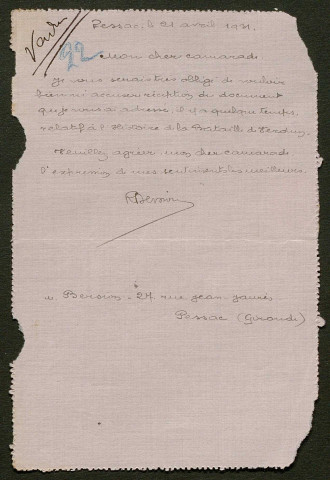 Pessac, le 21 avril 1931.
22
Mon cher camarade
Je vous serais très obligé de vouloir
bien m'accuser réception du document
que je vous ai adressé, il y a quelque temps
relatif à l'Histoire de la Bataille de Verdun.
Veuillez agréer mon cher camarade
l'expression de mes sentiments les meilleurs
27 rue Jean Jaurès
Pessac (Gironde)